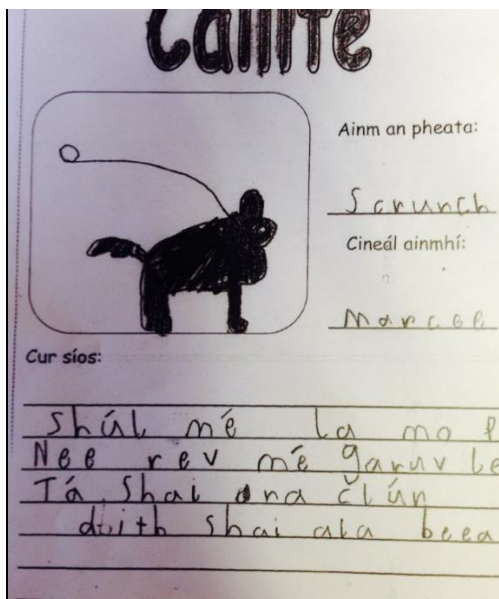 Caillte
Ainm an pheata:
Scrunch
Cineál ainmhí:
Marcoe
Cur síos:
Shúl mé la mo
Nee rev mé garuv le
Tá Shai ana člún
duith Shai ala beea